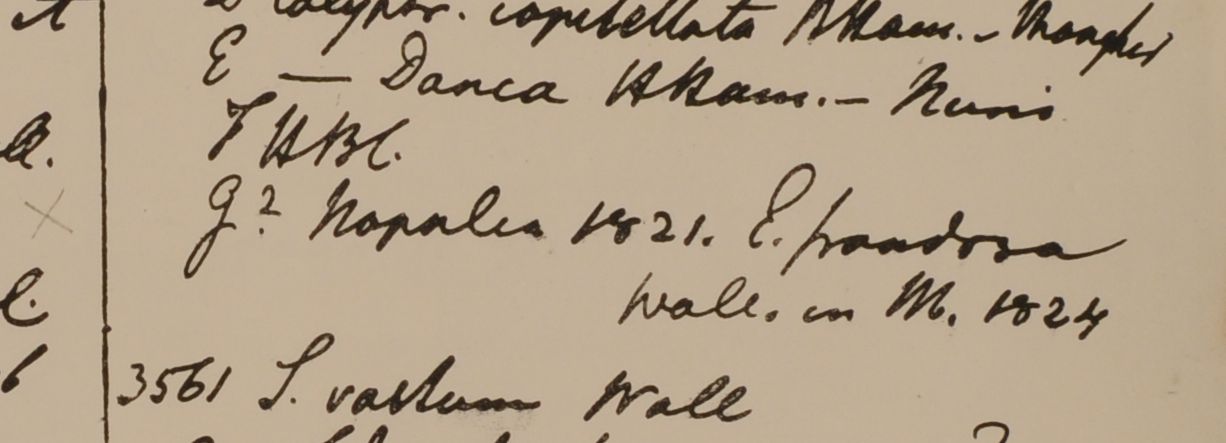 D Calyptr. capitellata HHam. - Mongher
E — Danca HHam. - Nuni
F HBC.
G? Napalia 1821. E. frondosa
Wall. in M. 1824
3561 S. vastum Wall